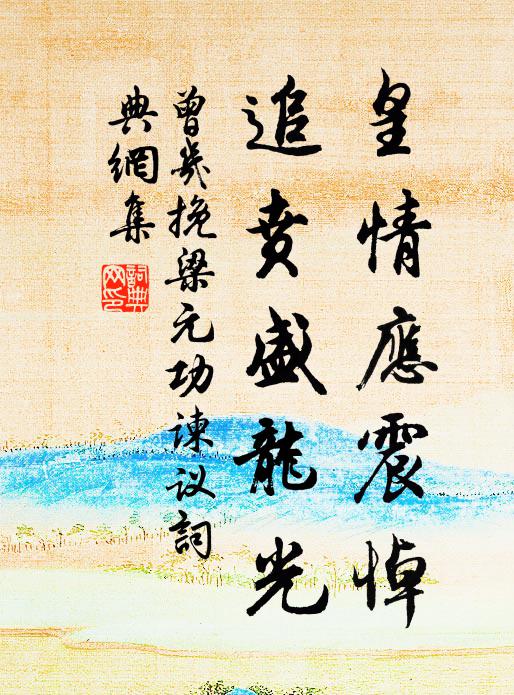 皇情應震悼
追賁盛龍光
曾幾挽梁元功諫议詞
典網集
詞典網印